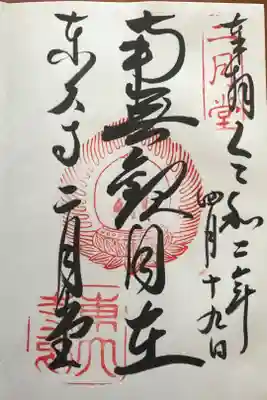 二月堂
奉拝 令和二年
四月十九日
南無観自在
東大寺 二月堂